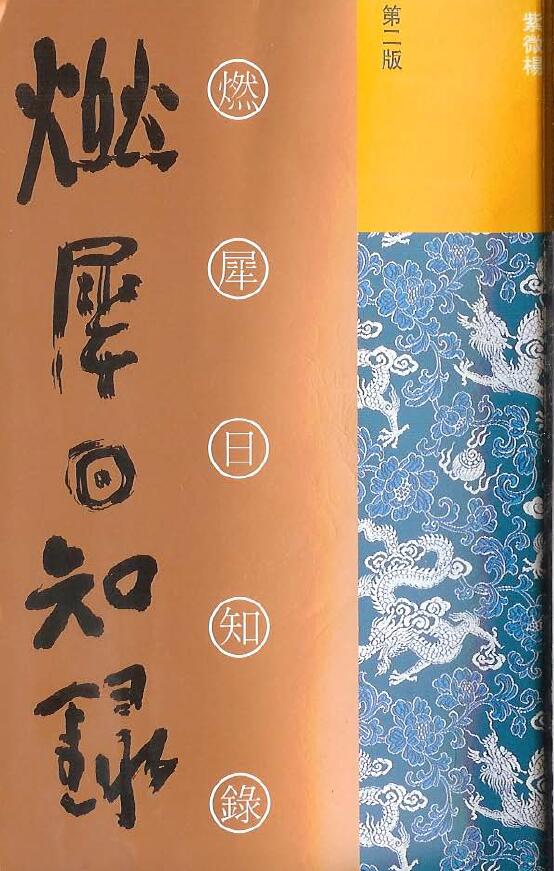 紫微楊
第二版
燃犀日知錄
燃犀日知錄